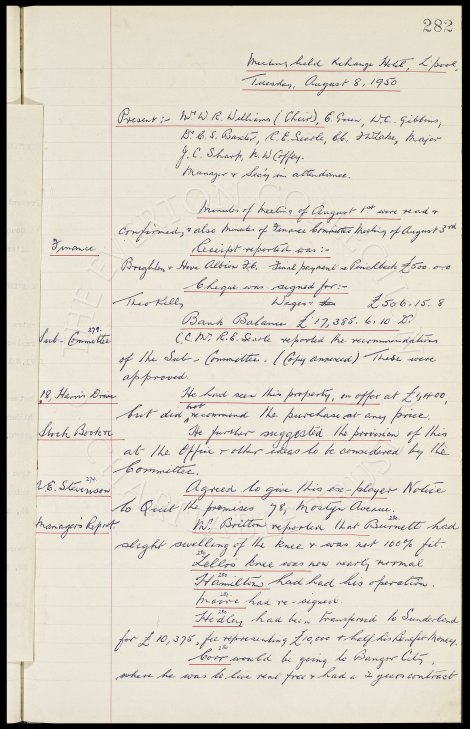 282
Meeting held Exchange Hotel, L'pool,
Tuesday, August 8, 1950
Present :- Mr W. R. Williams (Chair), E. Green, W.C. Gibbins,
Dr C. S. Baxter, R. E. Searle, Major
J. C. Sharp, N. W. Coffey.
Manager & Sec'y in attendance.
Minutes of Meeting of August 1st were read &
confirmed, & also Minutes of Finance Committee Meeting of August 3rd
Finance Receipt reported was :-
Brighton & Hove Albion F.C. Final payment re Pinchbeck £500.0.0
Cheque was signed for :-
Theo Kelly Wages £506. 15. 8
Bank Balance £17,385. 6. 10 D.
Sub-Committee 279. C.C. Mr R. E. Searle reported the recommendations
of the Sub-Committee. (Copy annexed) These were
approved.
18, Harris Drive He had seen this property, on offer at £1,400,
but did not recommend the purchase at any price.
Stock Book He further suggested the provision of this
at the Office & other ideas to be considered by the
Committee.
J.E. Stevenson 274. Agreed to give this ex-player Notice
to Quit the premises 78, Mostyn Avenue.
Managers Report. Mr Britton reported that Burnett 280. had
slight swelling of the knee & was not 100% fit.
280. Lello's knee was now nearly normal
280. Hamilton had had his operation.
280. Moore had re-signed.
280. Hedley had been transferred to Sunderland
for £10,375, fee representing £10,000 & half his benefit money.
280. Corr would be going to Bangor City,
where he was to live rent free & had a 2 years contract
THE EVERTON COLLECTION
CHARITABLE TRUST